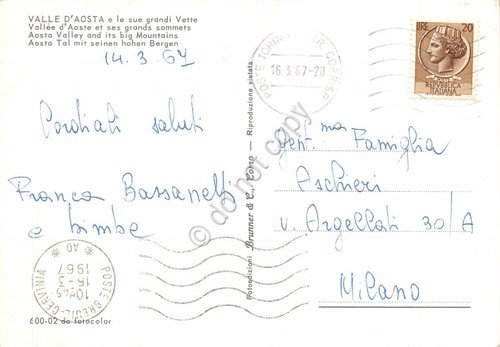 VALLE D'AOSTA e le sue grandi Vette
Vallée d'Aoste et ses grands sommets
Aosta Valley and its big Mountains
Aosta Tal mit seinen hohen Bergen
14.3.67
Cordiali saluti
Franca Bassanelli
e bimbe
POSTE BREUIL-CERVINIA
* AO *
16-3
1967
10H45
600-02 da fotocolor
Fotoedizioni Brunner & C., Como - Riproduzione vietata
16.3.67-20
LIRE 20
REPVBBLICA
ITALIANA
Gen.ma Famiglia
Aschieri
v. Argellati 30/A
Milano
do not copy